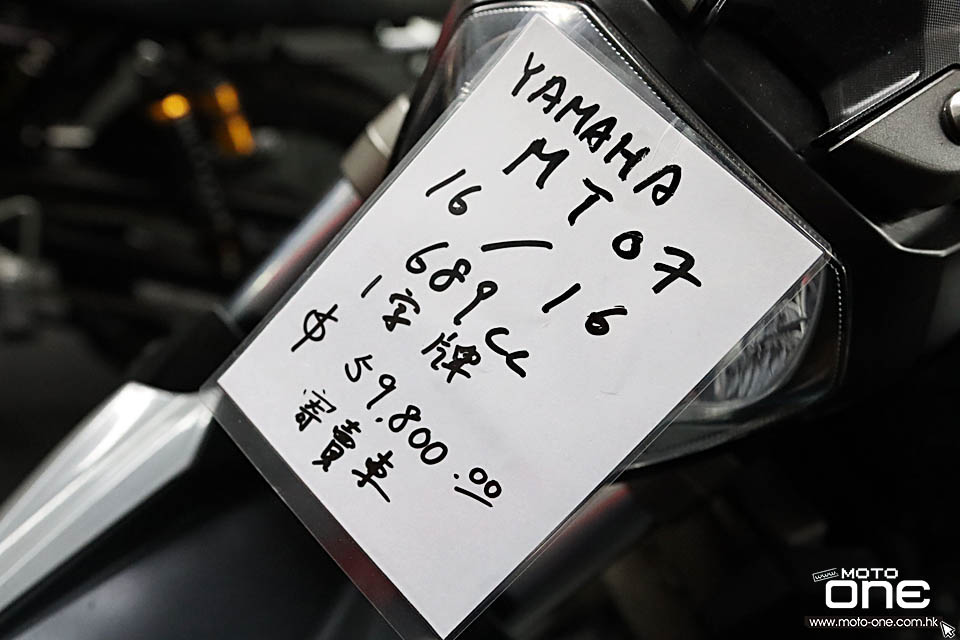 YAMAHA
MT07
16 — 16
689cc
1字牌
$59,800.00
寄賣車
MOTO
ONE
www.moto-one.com.hk